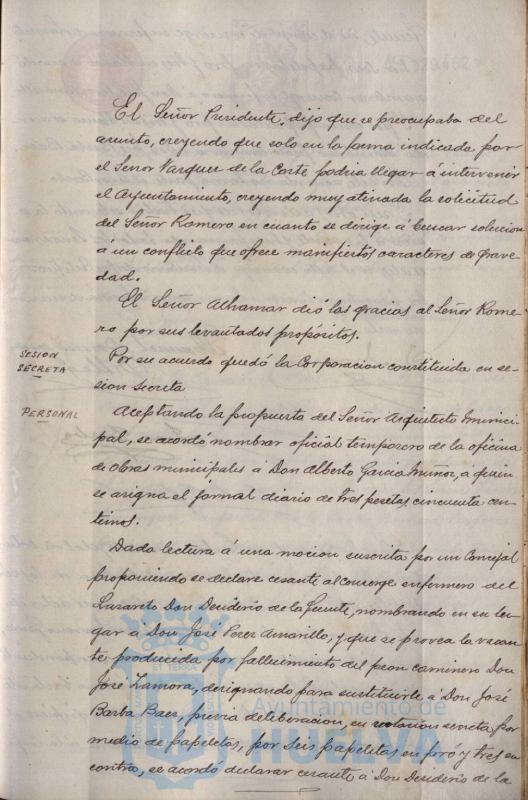 El Señor Presidente, dijo que se preocupaba del
asunto, creyendo que solo en la forma indicada por
el Señor Vazquez de la Corte podria llegar á intervenir
el Ayuntamiento, creyendo muy atinada la solicitud
del Señor Romero en cuanto se dirige á buscar solucion
á un conflicto que ofrece manifiestos caracteres de grave-
dad.
El Señor Alhamar dió las gracias al Señor Rome-
ro por sus levantados propósitos.
SESION
SECRETA
Por su acuerdo quedó la Corporacion constituida en se-
sion secreta
PERSONAL
Aceptando la propuesta del Señor Arquitecto munici-
pal, se acordó nombrar oficial temporero de la oficina
de obras municipales á Don Alberto Garcia Muñoz, á quien
se asigna el jornal diario de tres pesetas cincuenta cen-
timos.
Dada lectura á una mocion suscrita por un Concejal
proponiendo se declare cesante al conserge enfermero del
Lazareto Don Desiderio de la Fuente, nombrando en su lu-
gar á Don José Perez Amarillo, y que se provea la vacan-
te producida por fallecimiento del peon caminero Don
José Zamora, designando para sustituirle á Don José
Barba Baez, previa deliberacion, en votacion secreta por
medio de papeletas, por seis papeletas en pró y tres en
contra, se acordó declarar cesante á Don Desiderio de la
Ayuntamiento de
HUELVA